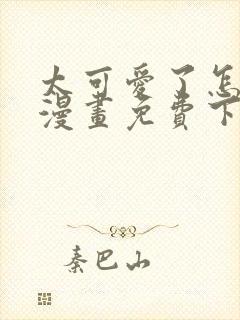 太可愛了怎
漫畫免費下
秦巴山